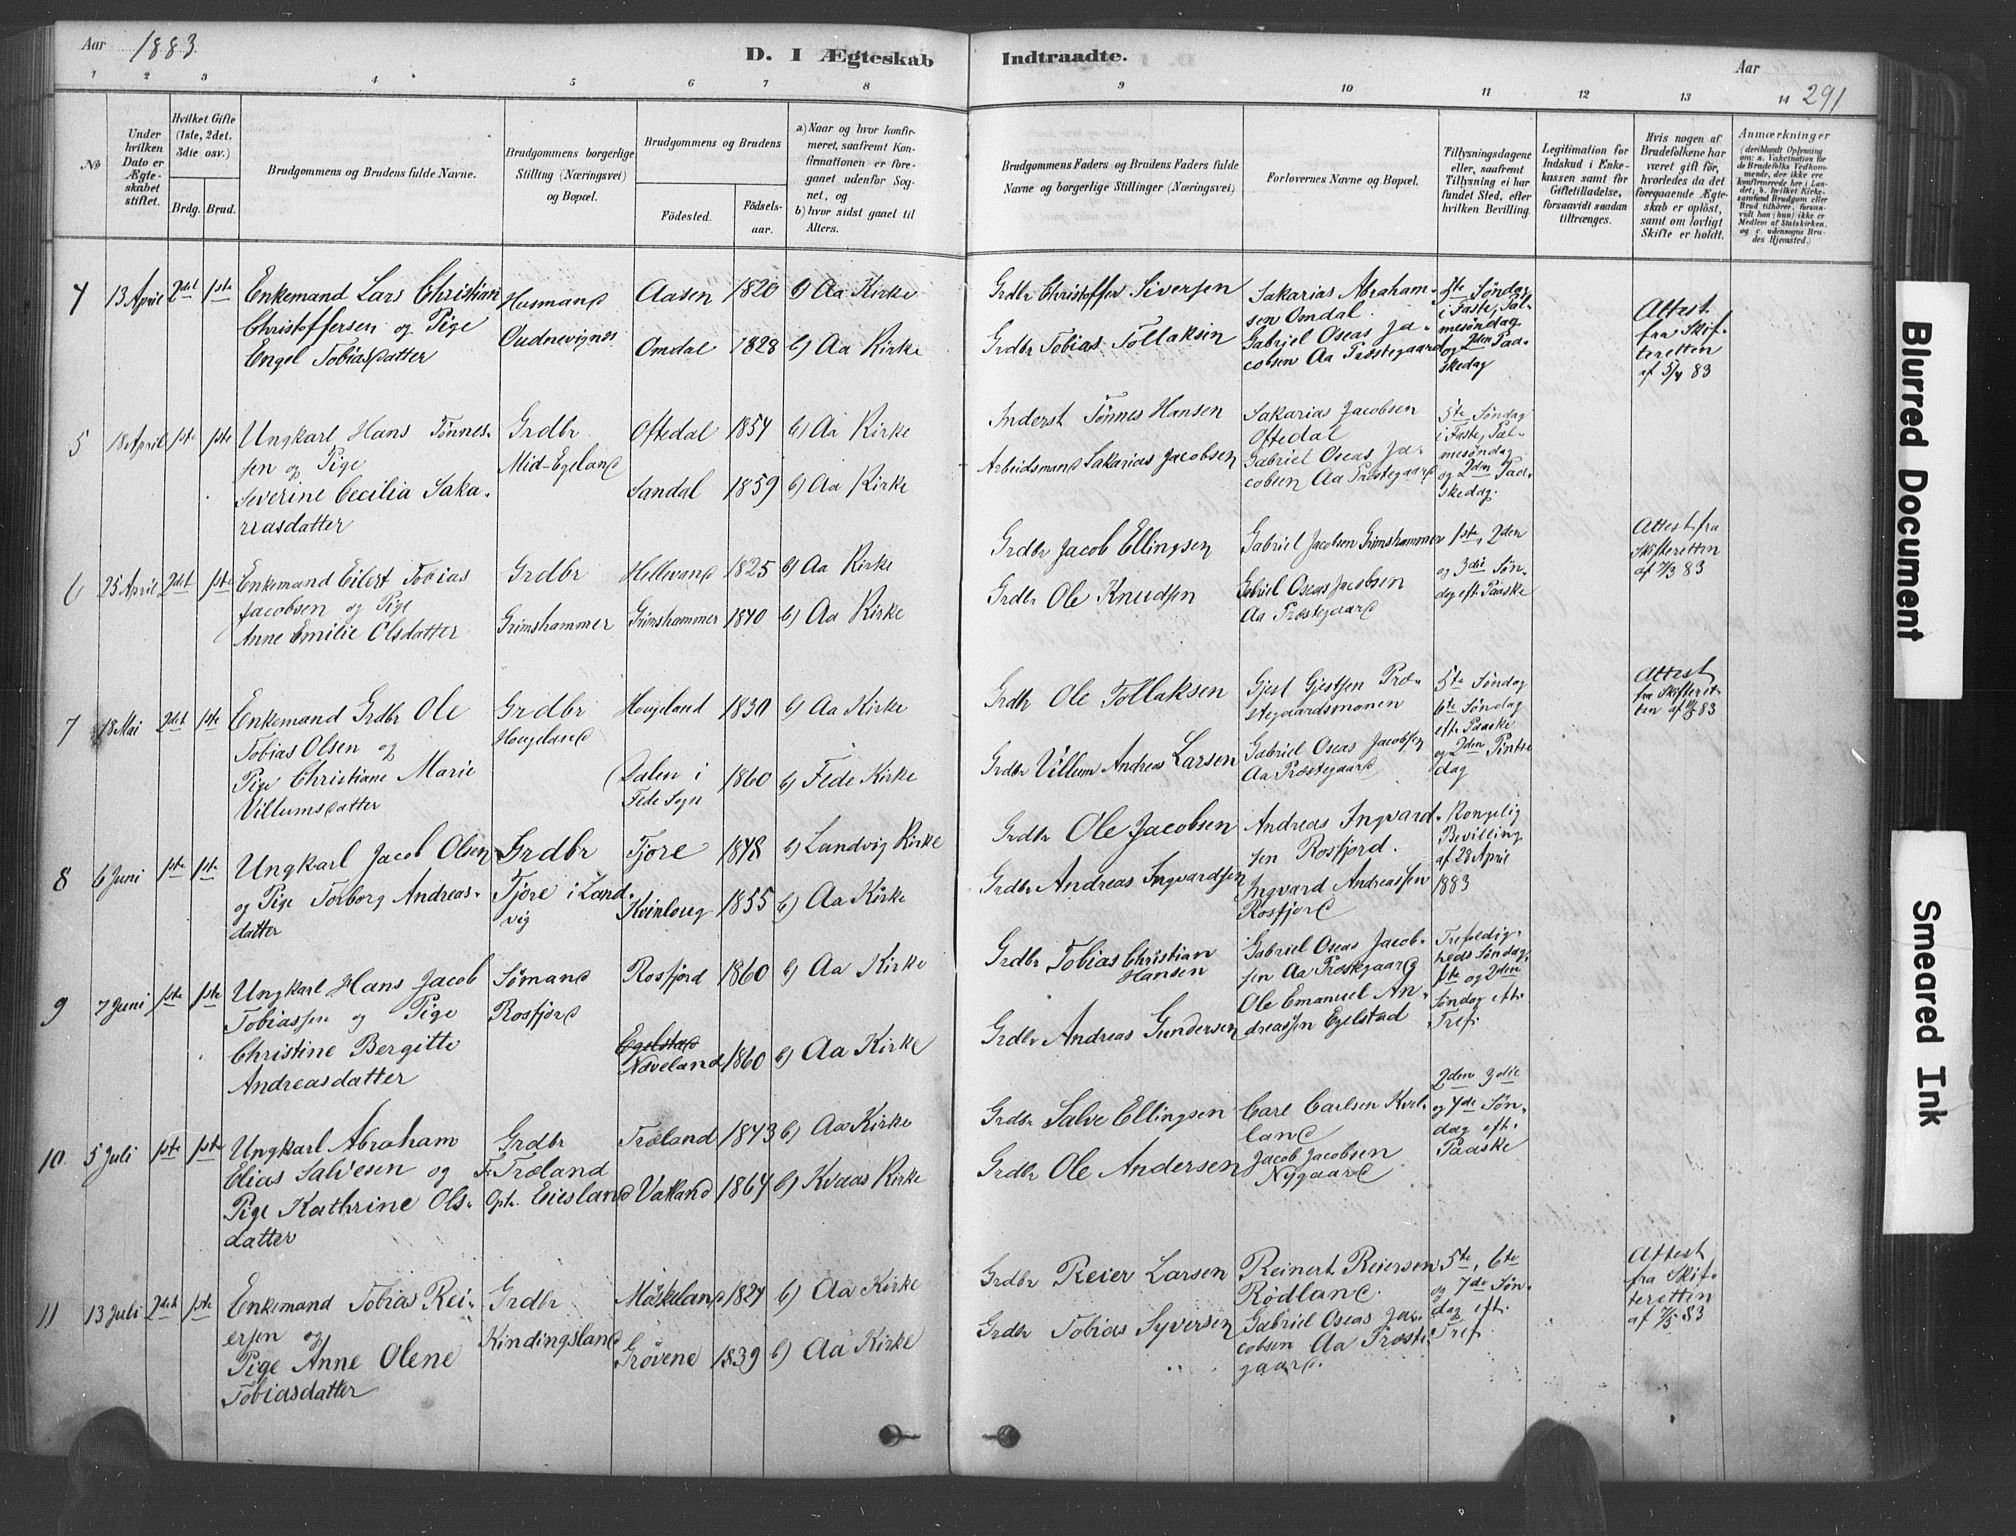 Aar 1883
D. I Ægteskab
Indtraadte.
Aar
291
1 2 3 4 5 6 7 8 9 10 11 12 13 14
No
Under hvilken Dato er Ægteskabet stiftet.
Hvilket Gifte (1ste, 2det, 3die osv.)
Brdg. Brud.
Brudgommens og Brudens fulde Navne.
Brudgommens borgerlige Stilling (Næringsvei) og Bopæl.
Brudgommens og Brudens
Fødested.
Fødselsaar.
a) Naar og hvor konfirmeret, saafremt Konfirmationen er foregaaet udenfor Sognet, og
b) hvor sidst gaaet til Alters.
Brudgommens Faders og Brudens Faders fulde Navne og borgerlige Stillinger (Næringsvei)
Forlovernes Navne og Bopæl.
Tillysningsdagene eller, saafremt Tillysning ei har fundet Sted, efter hvilken Bevilling.
Legitimation for Indskud i Enkekassen samt for Giftetilladelse, forsaavidt saadan tiltrænges.
Hvis nogen af Brudefolkene har været gift, hvorledes da det foregaaende Ægteskab er opløst, samt om lovligt Skifte er holdt.
Anmærkninger
4 13 April 2det 1ste
Enkemand Lars Christian
Christoffersen og Pige
Engel Tobiasdatter
Husmand
Aasen 1820 b) Aa Kirke
Omdal 1828 b) Aa Kirke
Grdbr Christoffer Siversen
Grdbr Tobias Tollaksen
Sakarias Abraham-
sen Omdal
Gabriel Oseas Ja-
cobsen Aa Præstegaard
5te Søndag
i Faste, Pal-
mesøndag
og 2den Paa-
skedag
Attest
fra Skif-
teretten
af 5/4 83
5 18 April 1ste 1ste
Ungkarl Hans Tønnes-
sen og Pige
Severine Cecilia Saka-
riasdatter
Grdbr
Mid-Egeland
Oftedal 1854 b) Aa Kirke
Sandal 1859 b) Aa Kirke
Inderst Tønnes Hansen
Arbeidsmand Sakarias Jacobsen
Sakarias Jacobsen
Oftedal
Gabriel Oseas Ja-
cobsen Aa Præstegaard
5te Søndag
i Faste, Pal-
mesøndag
og 2den Paa-
skedag.
6 25 April 2det 1ste
Enkemand Eilert Tobias
Jacobsen og Pige
Anne Emilie Olsdatter
Grdbr
Grimshammer
Helleland 1825 b) Aa Kirke
Grimshammer 1840 b) Aa Kirke
Grdbr Jacob Ellingsen
Grdbr Ole Knudsen
Gabriel Jacobsen Grimshammer
Gabriel Oseas Jacobsen
Aa Præstegaard
1ste, 2den
og 3die Søn-
dag eft Paaske
Attest fra
Skifteretten
af 7/3 83
7 18 Mai 2det 1ste
Enkemand Grdbr Ole
Tobias Olsen og
Pige Christiane Marie
Villumsdatter
Grdbr
Hougeland
Hougeland 1830 b) Aa Kirke
Dalen i
Fede Sogn 1860 b) Fede Kirke
Grdbr Ole Tollaksen
Grdbr Villum Andreas Larsen
Gjest Gjestsen Præ-
stegaardsmonen
Gabriel Oseas Jacobsen
Aa Præstegaard
5te Søndag
6te Søndag
eft. Paaske
og 2den Pintse
dag
Attest
fra Skifteret-
8 6 Juni 1ste 1ste
Ungkarl Jacob Olsen
og Pige Torborg Andreas-
datter
Grdbr
Tjore i Land
vig
Tjore 1848 b) Landvig Kirke
Kvinlaug 1855 b) Aa Kirke
Grdbr Ole Jacobsen
Grdbr Andreas Ingvardsen
Andreas Ingvard-
sen Rosfjord.
Ingvard Andreassen
Rosfjord
Kongelig
Bevilling
af 28 April
1883
9 7 Juni 1ste 1ste
Ungkarl Hans Jacob
Tobiassen og Pige
Christine Bergitte
Andreasdatter
Sømand
Rosfjord
Rosfjord 1860 b) Aa Kirke
Egelstad
Næveland 1860 b) Aa Kirke
Grdbr Tobias Christian
Hansen
Grdbr Andreas Gundersen
Gabriel Oseas Jacob-
sen Aa Præstegaard
Ole Emanuel An-
dreassen Egelstad
Trefoldig-
heds Søndag,
1ste og 2den
Søndag eft.
Tref.
10 5 Juli 1ste 1ste
Ungkarl Abraham
Elias Salvesen og
Pige Kathrine Ols-
datter
Grdbr
F. Træland
Oph. Eiesland
Træland 1843 b) Aa Kirke
Vatland 1864 b) Kvaas Kirke
Grdbr Salve Ellingsen
Grdbr Ole Andersen
Carl Carlsen Kvel-
land
Jacob Jacobsen
Nygaard
2den 3die
og 4de Søn-
dag eft.
Paaske
11 13 Juli 2det 1ste
Enkemand Tobias Rei-
ersen og
Pige Anne Olene
Tobiasdatter
Grdbr
Kindingsland
Møskeland 1824 b) Aa Kirke
Grøvene 1839 b) Aa Kirke
Grdbr Reier Larsen
Grdbr Tobias Syversen
Reinert Reiersen
Rødland.
Gabriel Oseas Ja-
cobsen Aa Præste-
gaard.
5te, 6te
og 7de Søn-
dag eft.
Tref.
Attest
fra Skif-
teretten
af 7/5 83
Blurred Document
Smeared Ink